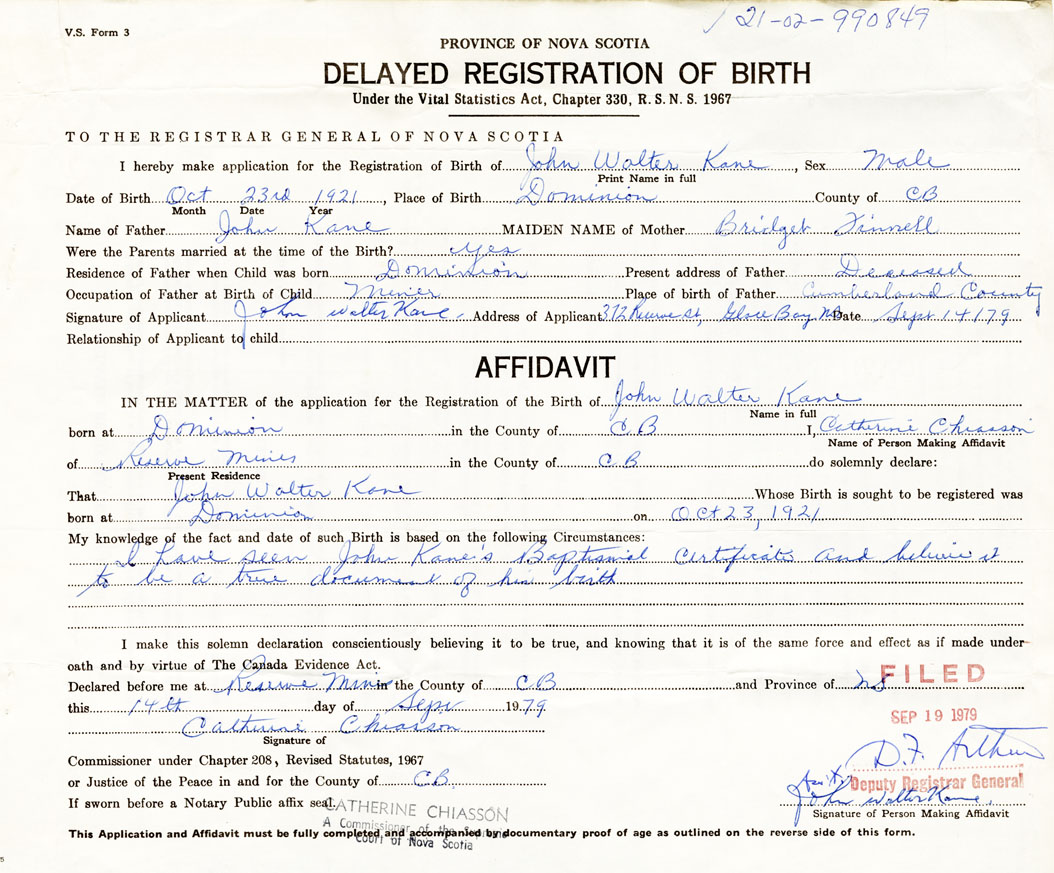 V.S. Form 3
21-02-990849
PROVINCE OF NOVA SCOTIA
DELAYED REGISTRATION OF BIRTH
Under the Vital Statistics Act, Chapter 330, R. S. N. S. 1967
TO THE REGISTRAR GENERAL OF NOVA SCOTIA
I hereby make application for the Registration of Birth of John Walter Kane, Sex Male
Print Name in full
Date of Birth Oct 23rd 1921, Place of Birth Dominion County of CB
Month Date Year
Name of Father John Kane MAIDEN NAME of Mother Bridget Finnell
Were the Parents married at the time of the Birth? yes
Residence of Father when Child was born Dominion Present address of Father Deceased
Occupation of Father at Birth of Child Minier Place of birth of Father Cumberland County
Signature of Applicant John Walter Kane. Address of Applicant 372 Reserve St, Glace Bay NS Date Sept 14 179
Relationship of Applicant to child
AFFIDAVIT
IN THE MATTER of the application for the Registration of the Birth of John Walter Kane
Name in full
born at Dominion in the County of CB I, Catherine Chiasson
Name of Person Making Affidavit
of Reserve Mines in the County of CB do solemnly declare:
Present Residence
That John Walter Kane Whose Birth is sought to be registered was
born at Dominion on Oct 23, 1921
My knowledge of the fact and date of such Birth is based on the following Circumstances:
I have seen John Kane's Baptismal Certificate and believe it
to be a true document of his birth
I make this solemn declaration conscientiously believing it to be true, and knowing that it is of the same force and effect as if made under
oath and by virtue of The Canada Evidence Act.
Declared before me at Reserve Mines in the County of CB and Province of NS
FILED
this 14th day of Sept 1979
SEP 19 1979
Catherine Chiasson
Signature of
D.F. Arthur
Commissioner under Chapter 208, Revised Statutes, 1967
or Justice of the Peace in and for the County of CB.
Ass't Deputy Registrar General
John Walter Kane.
If sworn before a Notary Public affix seal.
CATHERINE CHIASSON
Signature of Person Making Affidavit
A Commissioner of the Supreme
This Application and Affidavit must be fully completed and accompanied by documentary proof of age as outlined on the reverse side of this form.
Court of Nova Scotia
5